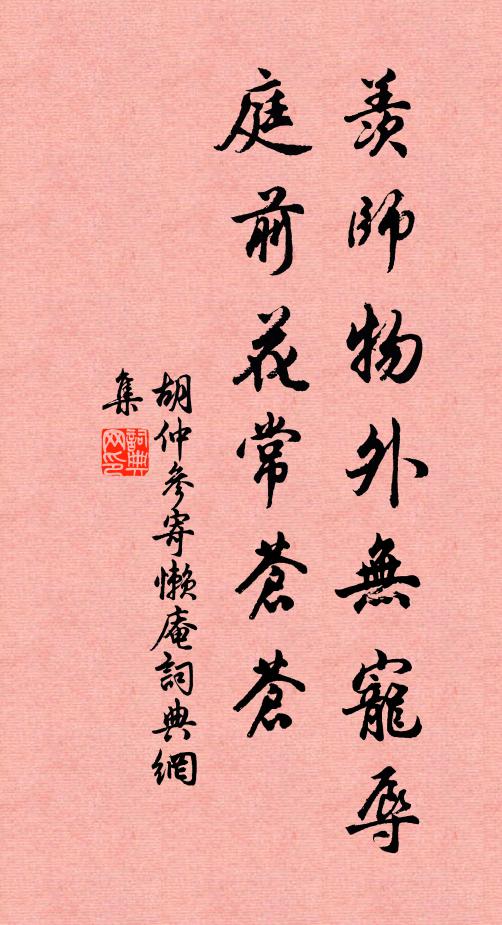 羨師物外無寵辱
庭前花常蒼蒼
胡仲參寄懶庵詞典網
集
詞典
网印